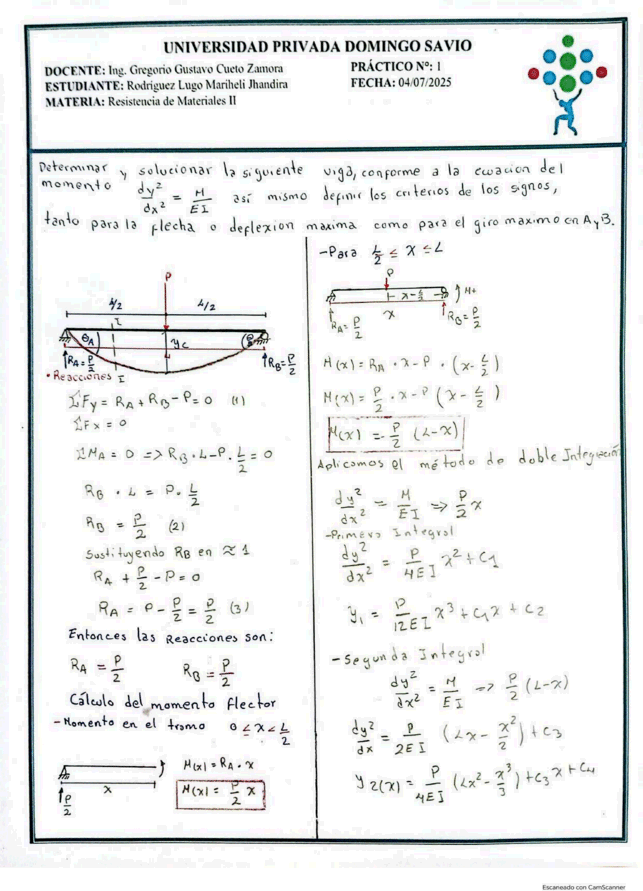 UNIVERSIDAD PRIVADA DOMINGO SAVIO
DOCENTE: Ing. Gregorio Gustavo Cueto Zamora
PRÁCTICO Nº: 1
ESTUDIANTE: Rodriguez Lugo Mariheli Jhandira
FECHA: 04/07/2025
MATERIA: Resistencia de Materiales II
Determinar y solucionar la siguiente viga, conforme a la ecuacion del
momento dy²/dx² = M/EI así mismo definir los criterios de los signos,
tanto para la flecha o deflexion maxima como para el giro maximo en A y B.
P
L/2 L/2
I
θA yc
RA=P/2 I RB=P/2
• Reacciones
ΣFy = RA + RB - P = 0 (1)
ΣFx = 0
ΣMA = 0 => RB · L - P · L/2 = 0
RB · L = P · L/2
RB = P/2 (2)
Sustituyendo RB en ≈ 1
RA + P/2 - P = 0
RA = P - P/2 = P/2 (3)
Entonces las Reacciones son:
RA = P/2 RB = P/2
Cálculo del momento flector
- Momento en el tramo 0 ≤ x ≤ L/2
M(x) = RA · x
P/2 x
M(x) = P/2 x
- Para L/2 ≤ x ≤ L
P
x - L/2 M+
RA = P/2 x RB = P/2
M(x) = RA · x - P · (x - L/2)
M(x) = P/2 · x - P (x - L/2)
M(x) = P/2 (L-x)
Aplicamos el método de doble Integración
dy²/dx² = M/EI => P/2 x
- Primera Integral
dy²/dx² = P/4EI x² + C1
y1 = P/12EI x³ + C1x + C2
- Segunda Integral
dy²/dx² = M/EI => P/2 (L-x)
dy²/dx = P/2EI (Lx - x²/2) + C3
y2(x) = P/4EI (Lx² - x³/3) + C3 x + C4
Escaneado con CamScanner